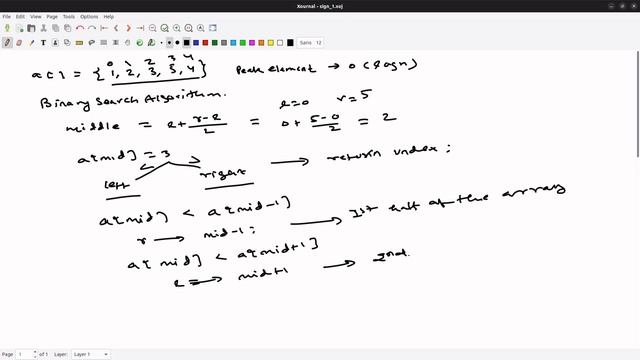 Xournal - sign_1.xoj
File Edit View Page Tools Options Help
Sans 12
0 1 2 3 4
a[] = {1, 2, 3, 5, 4} Peak element → O(logn)
Binary Search Algorithm.
l=0 r=5
middle = l + r-l/2 = 0 + 5-0/2 = 2
a[mid] = 3 → return index;
left right
a[mid] < a[mid-1]
r → mid-1; → 1st half of the array
a[mid] < a[mid+1]
l → mid+1 → 2nd.
Page 1 of 1 Layer: Layer 1